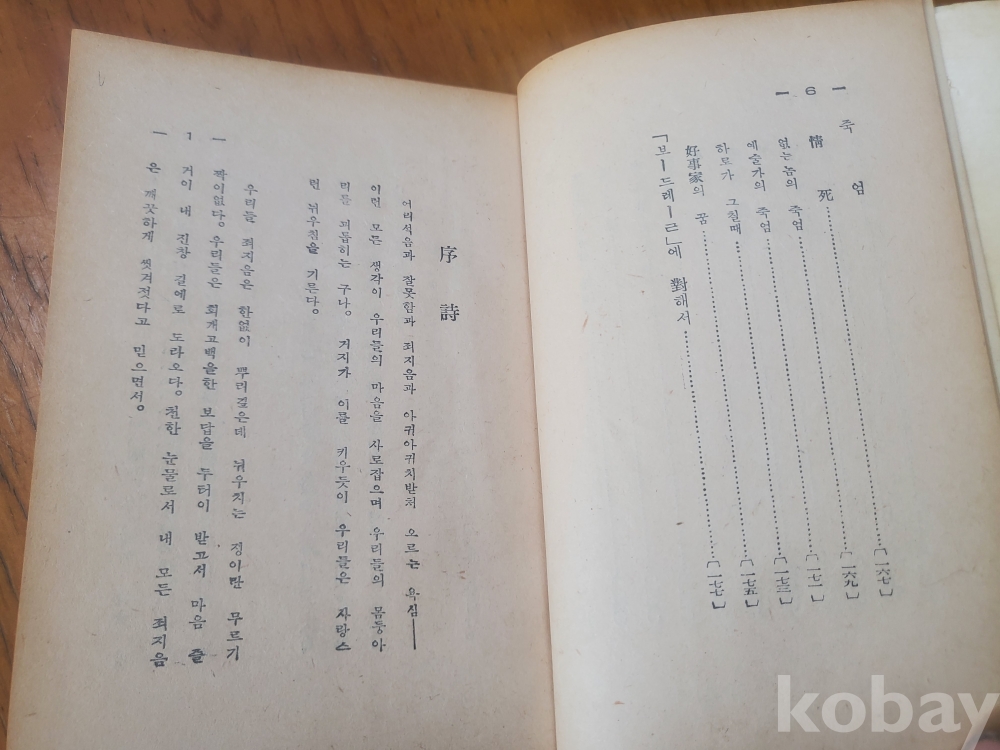 — 6 —
죽 엄
情 死〔一六七〕
없는놈의 죽엄〔一六九〕
예술가의 죽엄〔一七一〕
하로가 그칠때〔一七三〕
好事家의 꿈〔一七五〕
「브ー드레ー르」에 對해서〔一七七〕
序 詩
어리석음과 잘못함과 죄지음과 아귀아귀치받처 오르는 욕심——
이런 모든 생각이 우리들의 마음을 사로잡으며 우리들의 몸둥아
리를 괴롭히는 구나。 거지가 이를 키우듯이 우리들은 자랑스
런 뉘우침을 기른다。
우리들 죄지음은 한없이 뿌리깊은데 뉘우치는 정이란 무르기
짝이없다。우리들은 회개고백을한 보답을 두터이 받고서 마음 즐
거이 내 진창 길에로 도라오다。천한 눈물로서 내 모든 죄지음
은 깨끗하게 씻겨젓다고 믿으면서。
— 1 —
kobay